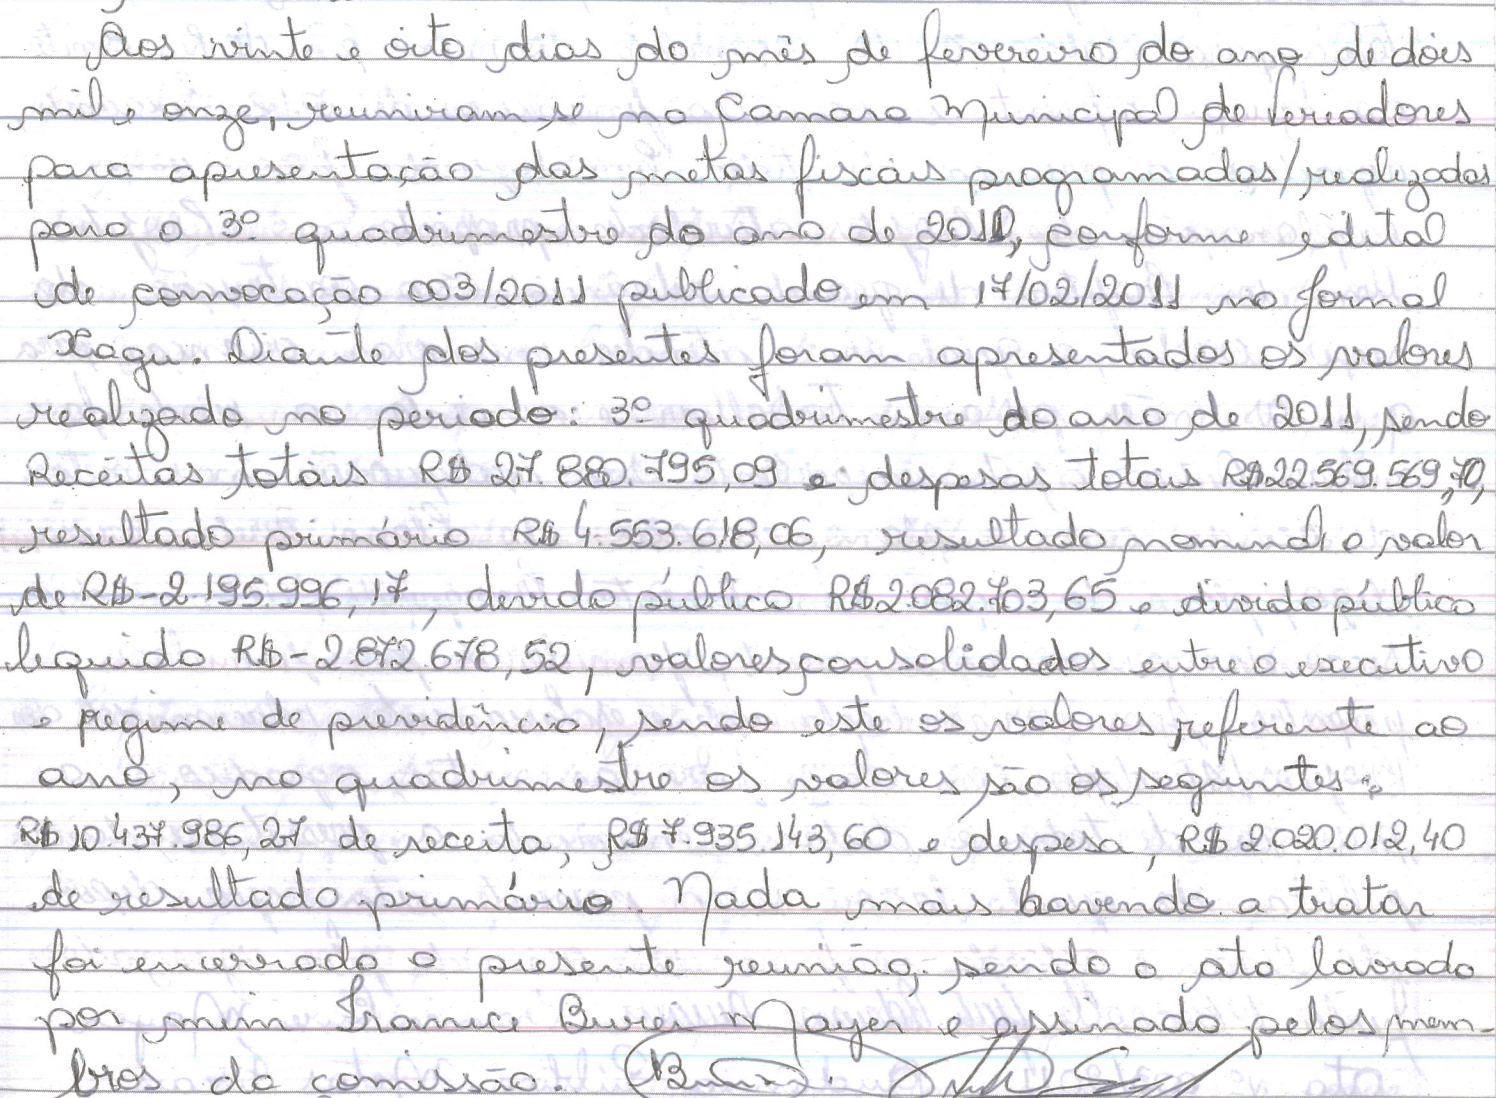 Aos vinte e oito dias do mês de fevereiro do ano de dois
mil e onze, reuniram se na Camara Municipal de Vereadores
para apresentação das metas fiscais programadas/realizadas
para o 3º quadrimestre do ano de 2010, conforme edital
de convocação 003/2011 publicado em 17/02/2011 no Jornal
Xagu. Diante dos presentes foram apresentados os valores
realizado no periodo: 3º quadrimestre do ano de 2011, sendo
Receitas totais R$ 27.880.795,09 e despesas totais R$ 22.569.569,70,
resultado primário R$ 4.553.618,06, resultado nominal o valor
de R$ -2.195.996,17, devida pública R$ 2.082.703,65 e divida pública
liquida R$ -2.872.678,52, valores consolidados entre o executivo
e regime de previdência, sendo este os valores referente ao
ano, no quadrimestre os valores são os seguintes:
R$ 10.437.986,27 de receita, R$ 7.935.143,60 e despesa, R$ 2.020.012,40
de resultado primário. Nada mais havendo a tratar
foi encerrada a presente reunião, sendo a ata lavrada
por mim Franice Burei Mayer e assinada pelos mem-
bros da comissão.